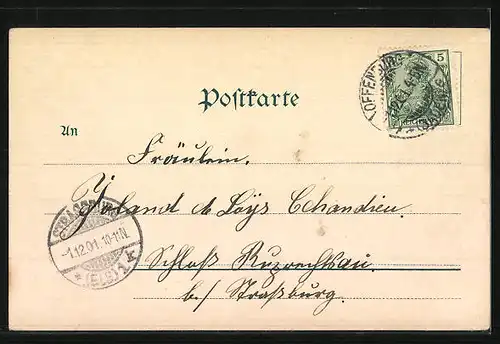 OFFENBURG
5
Postkarte
An
Fräulein.
Yoland de Loÿs Chandieu.
STRASSBURG
1.12.01.10-11N.
(ELS) 1 K
Schloß Ruprechtsau.
b./ Straßburg.